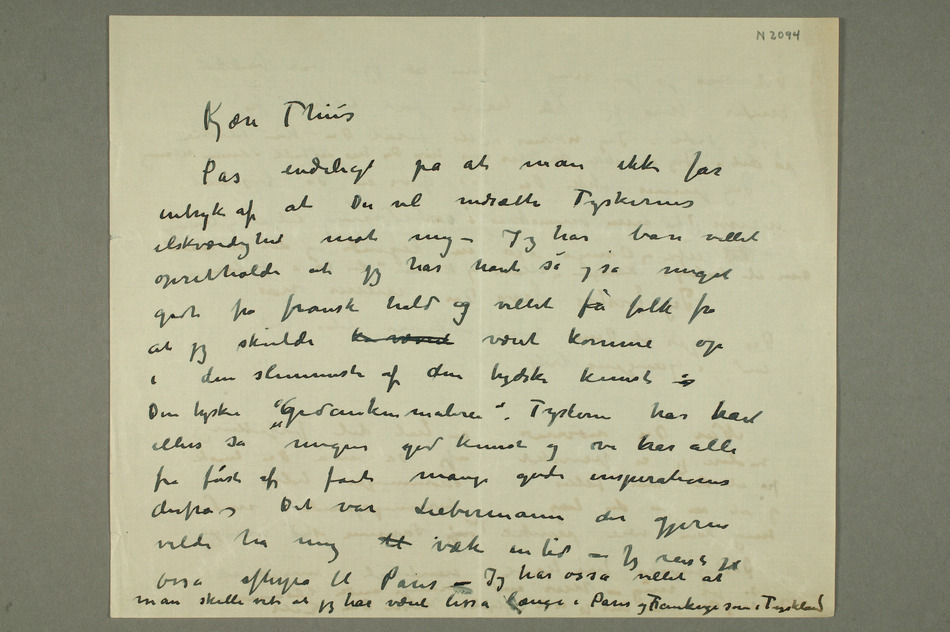 N 2094
Kjære Thiis
Pas endeligt på at man ikke får
indtryk af at Du vil nedsætte Tyskernes
elskværdighed mot mig – Jeg har bare villet
opretholde at jeg har havt så og så meget
godt fra fransk hold og villet få folk fra
at jeg skulde være komme op
i den slemmeste af den tydske kunst –
Den tyske "Gedankenmalerei". Tyskerne har havt
ellers så megen god kunst og vi har alle
fra først af fået mange gode inspirationer
derfra – Det var Liebermann der gjerne
vilde ha mig væk en tid – Jeg reiste jo
osså aftspa til Paris – Jeg har osså villet at
man skulle vite at jeg har været lissa længe i Paris og Frankrige som i Tyskland